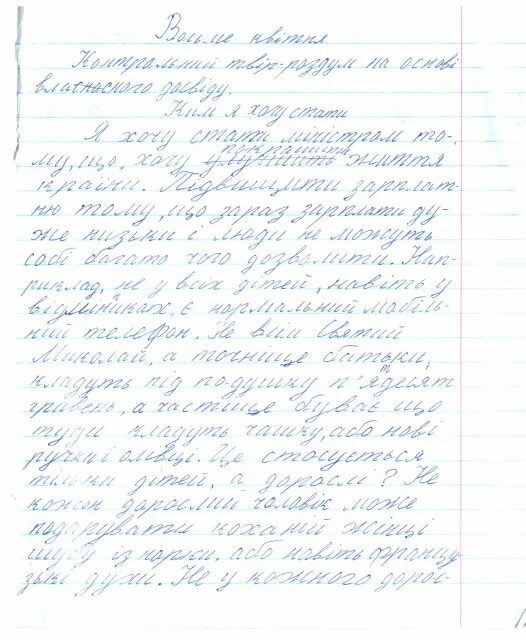 Восьме квітня
Контрольний твір-роздум на основі
власносного досвіду.
Ким я хочу стати
Я хочу стати міністром то-
му, що, хочу покращити життя
країни. Підвищити зарплат-
ню тому, що зараз зарплати ду-
же низькі і люди не можуть
собі багато чого дозволити. Нап-
риклад, не у всіх дітей, навіть у
відмінниках, є нормальний мобіль-
ний телефон. Не всім Святий
Миколай, а точнице батьки,
кладуть під подушку п'ятдесят
гривень, а частише буває що
туди кладуть чашку, або нові
ручки і олівці. Це стосується
тільки дітей, а дорослі? Не
кожен дорослий чоловік може
подарувати коханій жінці
шубу із норки. або навіть францу-
зькі духи. Не у кожного дорос-